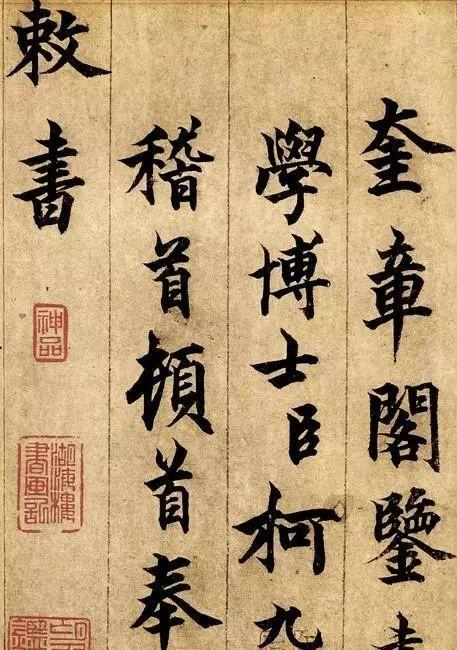 奎章閣鑒
學博士臣柯九
稽首頓首奉
敕書
神品
湖海樓